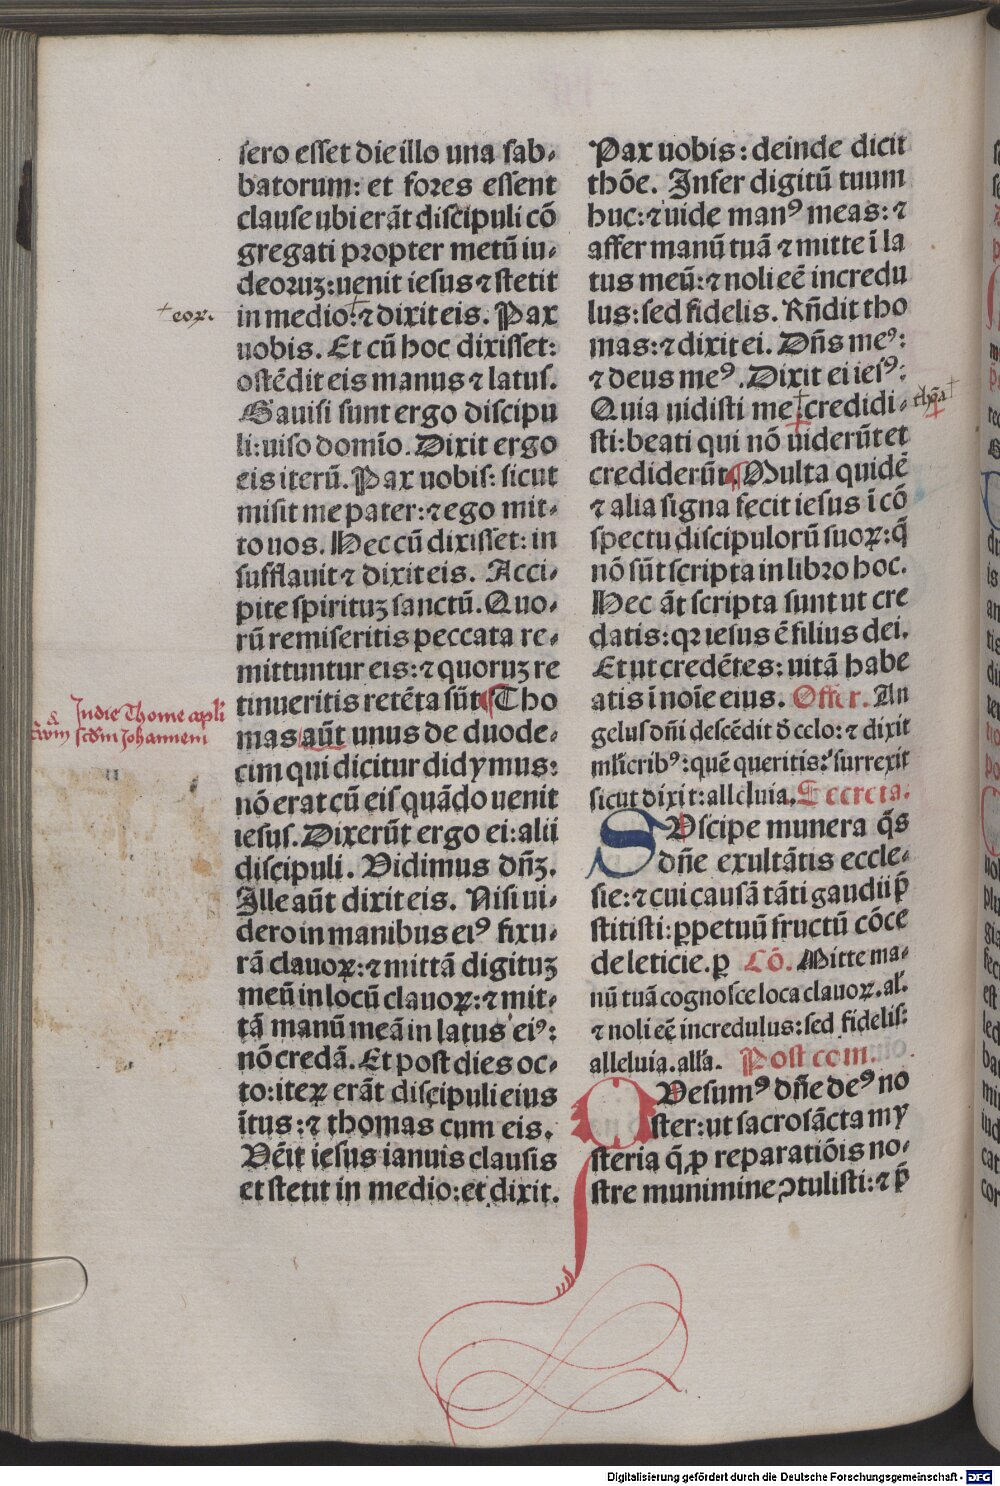 sero esset die illo una sab-
batorum: et fores essent
clause ubi erāt discipuli cō
gregati propter metū iu-
deoruꝫ: uenit iesus ⁊ stetit
in medio: ⁊ dixit eis. Pax
uobis. Et cū hoc dixisset:
ostēdit eis manus ⁊ latus.
Gauisi sunt ergo discipu
li: uiso domīo. Dixit ergo
eis iterū. Pax uobis: sicut
misit me pater: ⁊ ego mit-
to uos. Hec cū dixisset: in
sufflauit ⁊ dixit eis. Acci-
pite spirituꝫ sanctū. Quo-
rū remiseritis peccata re-
mittuntur eis: ⁊ quoruꝫ re
tinueritis retēta sūt ¶ Tho
mas aūt unus de duode-
cim qui dicitur didymus:
nō erat cū eis quādo uenit
iesus. Dixerūt ergo ei: alii
discipuli. Vidimus dn̄ꝫ.
Ille aūt dixit eis. Nisi ui-
dero in manibus eiꝰ fixu-
rā clauoꝝ: ⁊ mittā digituꝫ
meū in locū clauoꝝ: ⁊ mit-
tā manū meā in latus eiꝰ:
nō credā. Et post dies oc-
to: iteꝝ erāt discipuli eius
ītus: ⁊ thomas cum eis.
Vēit iesus ianuis clausis
et stetit in medio: et dixit.
†eoꝝ.
Jn die Thome apli
&
scdm Johannem
Pax uobis: deinde dicit
thōe. Infer digitū tuum
huc: ⁊ uide manꝰ meas: ⁊
affer manū tuā ⁊ mitte ī la
tus meū: ⁊ noli eē incredu
lus: sed fidelis. Rn̄dit tho
mas: ⁊ dixit ei. Dn̄s meꝰ:
⁊ deus meꝰ. Dixit ei iesꝰ:
Quia uidisti me: credidi-
sti: beati qui nō uiderūt et
crediderūt. ¶ Multa quidē
⁊ alia signa fecit iesus ī cō
spectu discipulorū suoꝝ: q̄
nō sūt scripta in libro hoc.
Hec āt scripta sunt ut cre
datis: qꝛ iesus ē filius dei.
Et ut credētes: uitā habe
atis ī noīe eius. Offer. An
gelus dn̄i descēdit ď celo: ⁊ dixit
ml̄icribꝰ: quē queritis: surrexit
sicut dixit: alleluia. Secreta.
SVscipe munera q̄s
dn̄e exultātis eccle-
sie: ⁊ cui causā tāti gaudii p̄
stitisti: ꝑpetuū fructū cōce
de leticie. ꝑ Cō. Mitte ma-
nū tuā cognosce loca clauoꝝ. al̄.
⁊ noli eē incredulus: sed fidelis:
alleluia. all'a. Post com.
QVesumꝰ dn̄e deꝰ no
ster: ut sacrosācta my
steria q̄ ꝓ reparatiōis no-
stre munimine ꝯtulisti: ⁊ p̄
Digitalisierung gefördert durch die Deutsche Forschungsgemeinschaft - DFG